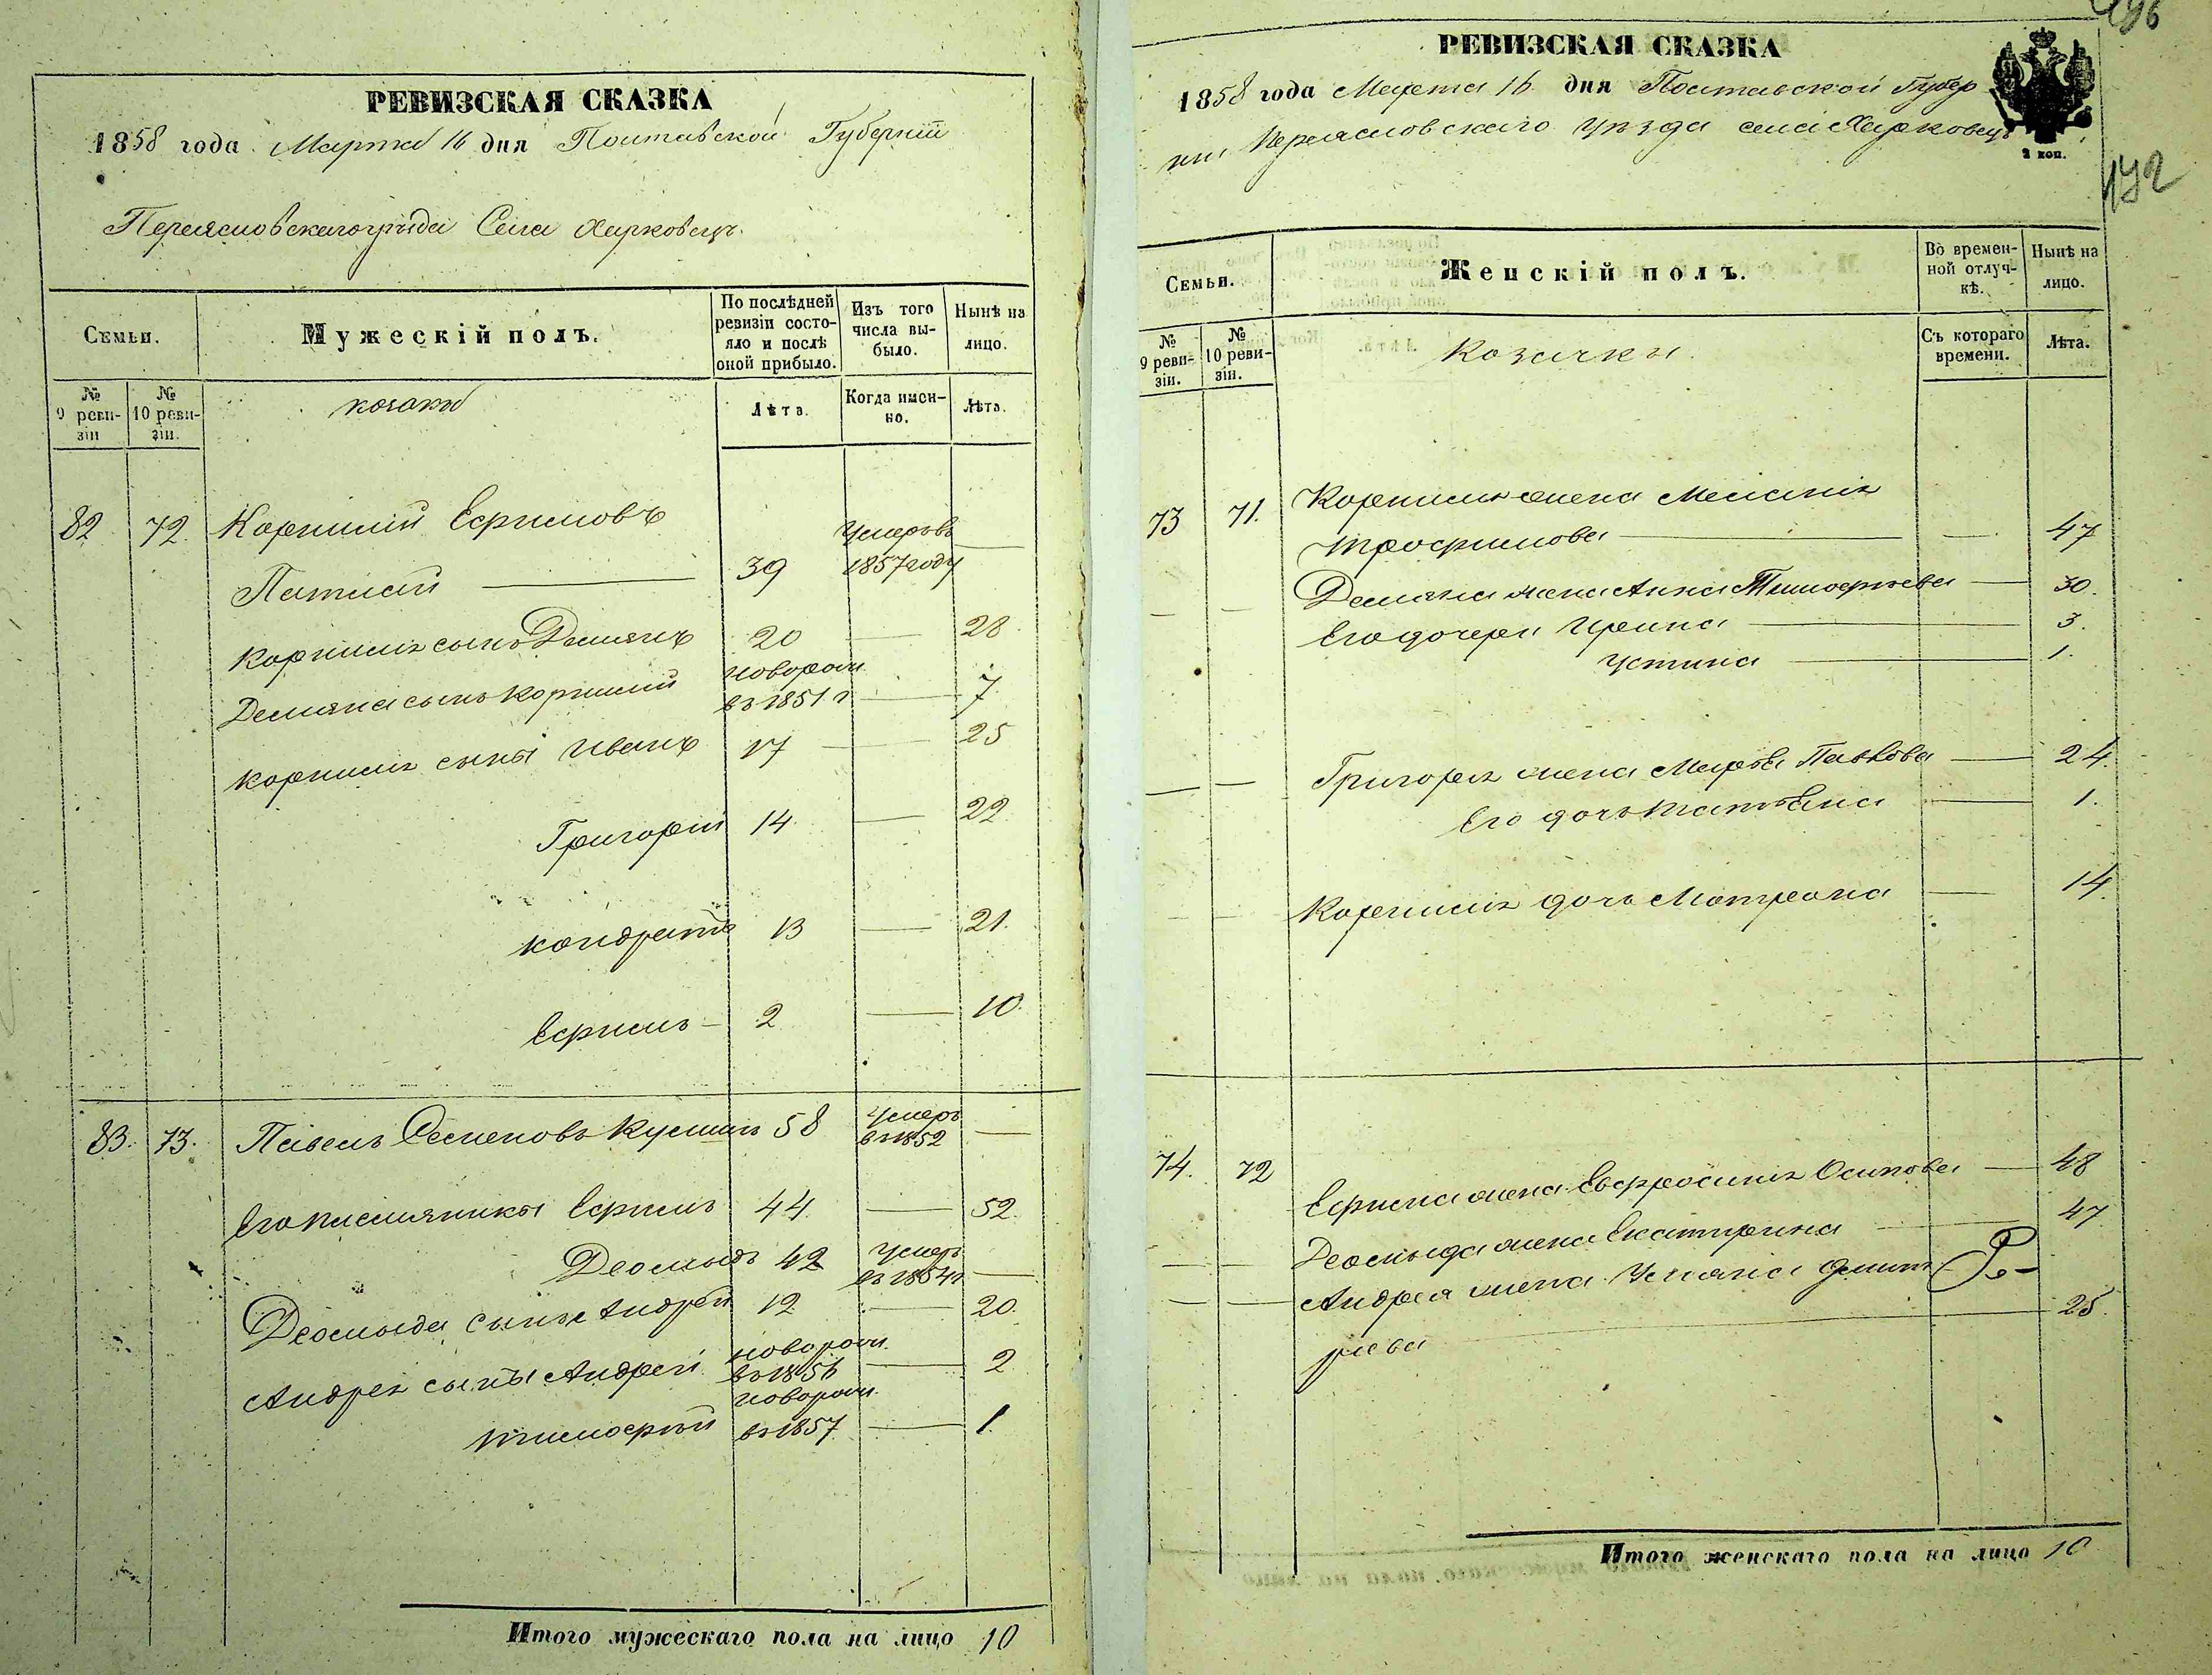 РЕВИЗСКАЯ СКАЗКА
1858 года Марта 16 дня Полтавской Губерніи
Переясловскагоуѣзда Села Харковецъ.
Семьи.
Мужескій полъ.
По послѣдней ревизіи состояло и послѣ оной прибыло.
Изъ того числа выбыло.
Нынѣ на лицо.
№ 9 ревизіи
№ 10 ревизіи.
козаки
Лѣта.
Когда именно.
Лѣта.
82 72. Корнилій Ефимовъ
Патлай 39 Умеръ въ 1857 году —
Корнилія сынъ Демянъ 20 — 28
Демяна сынъ Корнилій новорож. въ 1851 г — 7.
Корнилія сыны Иванъ 17 — 25
Григорій 14 — 22
Кондратъ 13 — 21.
Ефимъ — 2 — 10.
83. 73. Павелъ Семеновъ 58 Умеръ въ 1852 —
Его племяники Ефимъ 44 — 52.
Деомыдъ 42 Умеръ въ 1854 г —
Деомыда сынъ Андрей 12 — 20.
Андрея сыны Андрей новорож. въ 1856 — 2
Тимофей новорож. въ 1857 — 1.
Итого мужескаго пола на лицо 10
РЕВИЗСКАЯ СКАЗКА
1858 года Марта 16 дня Полтавской Губер
ніи Переясловскаго Уѣзда села Харковецъ
2 коп.
192
Семьи.
Женскій полъ.
Во временной отлучкѣ.
Нынѣ на лицо.
№ 9 ревизіи.
№ 10 ревизіи.
Козачки.
Съ котораго времени.
Лѣта.
73 71. Корнилія жена Меланія
Трофимова — 47
— — Демяна жена Анна Тимофѣева — 30.
Его дочери Ирина — 3.
Устина — 1.
— — Григорія жена Марфа Павлова — 24.
Его дочь Татьяна — 1.
— — Корнилія дочь Матрона — 14.
74. 72 Ефима жена Евфросинія Осипова — 48
— — Деомыда жена Екатирина — 47
— — Андрея жена Уліяна Дмит
ріева — 25.
Итого женскаго пола на лицо 10